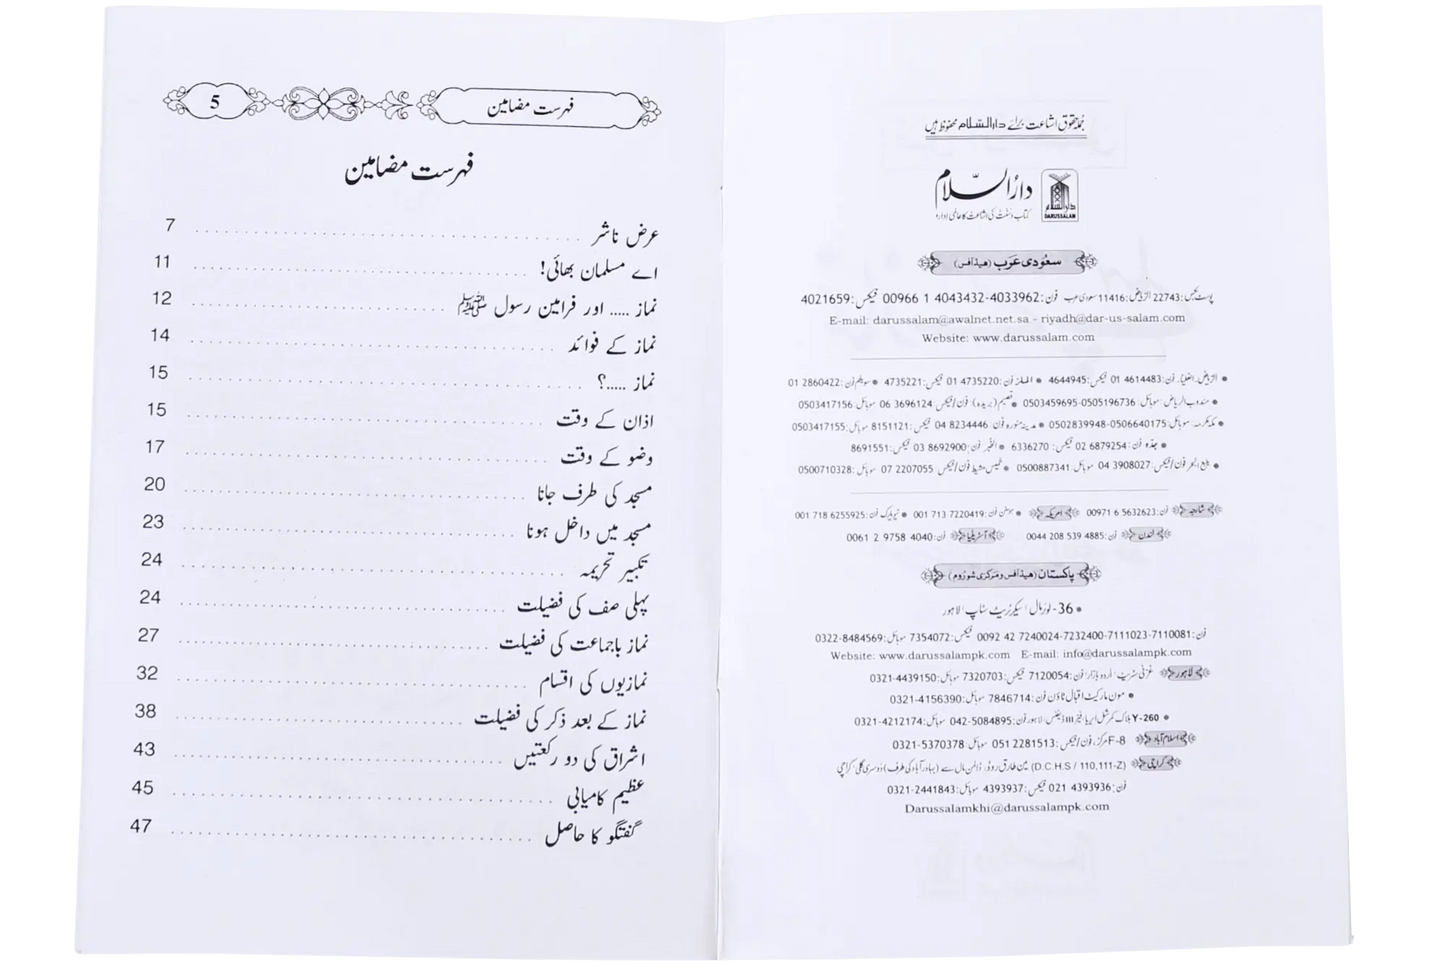 جملہ حقوق اشاعت برائے دارالسلام محفوظ ہیں
دارالسلام
کتاب و سنت کی اشاعت کا عالمی ادارہ
DARUSSALAM
سعودی عرب (ہیڈ آفس)
پوسٹ بکس: 22743 الریاض: 11416 سعودی عرب فون: 00966 1 4043432-4033962 فیکس: 4021659
E-mail: darussalam@awalnet.net.sa - riyadh@dar-us-salam.com
Website: www.darussalam.com
الریاض۔ العلیا۔ فون: 01 4614483 فیکس: 4644945 • الملز فون: 01 4735220 فیکس: 4735221 • سویلم فون: 01 2860422
• مندوب الریاض: موبائل: 0503459695-0505196736 • قصیم (بریدہ): فون/فیکس: 06 3696124 موبائل: 0503417156
• مکہ مکرمہ: موبائل: 0502839948-0506640175 • مدینہ منورہ فون: 04 8234446 فیکس: 8151121 موبائل: 0503417155
• جدہ فون: 02 6879254 فیکس: 6336270 • الخبر فون: 03 8692900 فیکس: 8691551
• ینبع البحر فون/فیکس: 04 3908027 موبائل: 0500887341 • خمیس مشیط فون/فیکس: 07 2207055 موبائل: 0500710328
شارجہ فون: 00971 6 5632623 امریکہ • ہوسٹن فون: 001 713 7220419 • نیویارک فون: 001 718 6255925
لندن فون: 0044 208 539 4885 آسٹریلیا فون: 0061 2 9758 4040
پاکستان (ہیڈ آفس و مرکزی شوروم)
• 36- لوئر مال، سیکرٹریٹ سٹاپ، لاہور
فون: 0092 42 7240024-7232400-7111023-7110081 فیکس: 7354072 موبائل: 0322-8484569
Website: www.darussalampk.com E-mail: info@darussalampk.com
لاہور غزنی سٹریٹ، اردو بازار، فون: 7120054 فیکس: 7320703 موبائل: 0321-4439150
• مون مارکیٹ اقبال ٹاؤن فون: 7846714 موبائل: 0321-4156390
• Y-260 بلاک کمرشل ایریا، فیز III ڈیفنس، لاہور فون: 042-5084895 موبائل: 0321-4212174
اسلام آباد F-8 مرکز، فون/فیکس: 051 2281513 موبائل: 0321-5370378
کراچی (D.C.H.S / 110,111-Z) مین طارق روڈ، ڈالمن مال سے (بہادر آباد کی طرف) دوسری گلی کراچی
فون: 021 4393936 فیکس: 4393937 موبائل: 0321-2441843
Darussalamkhi@darussalampk.com
فہرست مضامین 5
فہرست مضامین
عرض ناشر 7
اے مسلمان بھائی! 11
نماز ..... اور فرامین رسول ﷺ 12
نماز کے فوائد 14
نماز .....؟ 15
اذان کے وقت 15
وضو کے وقت 17
مسجد کی طرف جانا 20
مسجد میں داخل ہونا 23
تکبیر تحریمہ 24
پہلی صف کی فضیلت 24
نماز باجماعت کی فضیلت 27
نمازیوں کی اقسام 32
نماز کے بعد ذکر کی فضیلت 38
اشراق کی دو رکعتیں 43
عظیم کامیابی 45
گفتگو کا حاصل 47